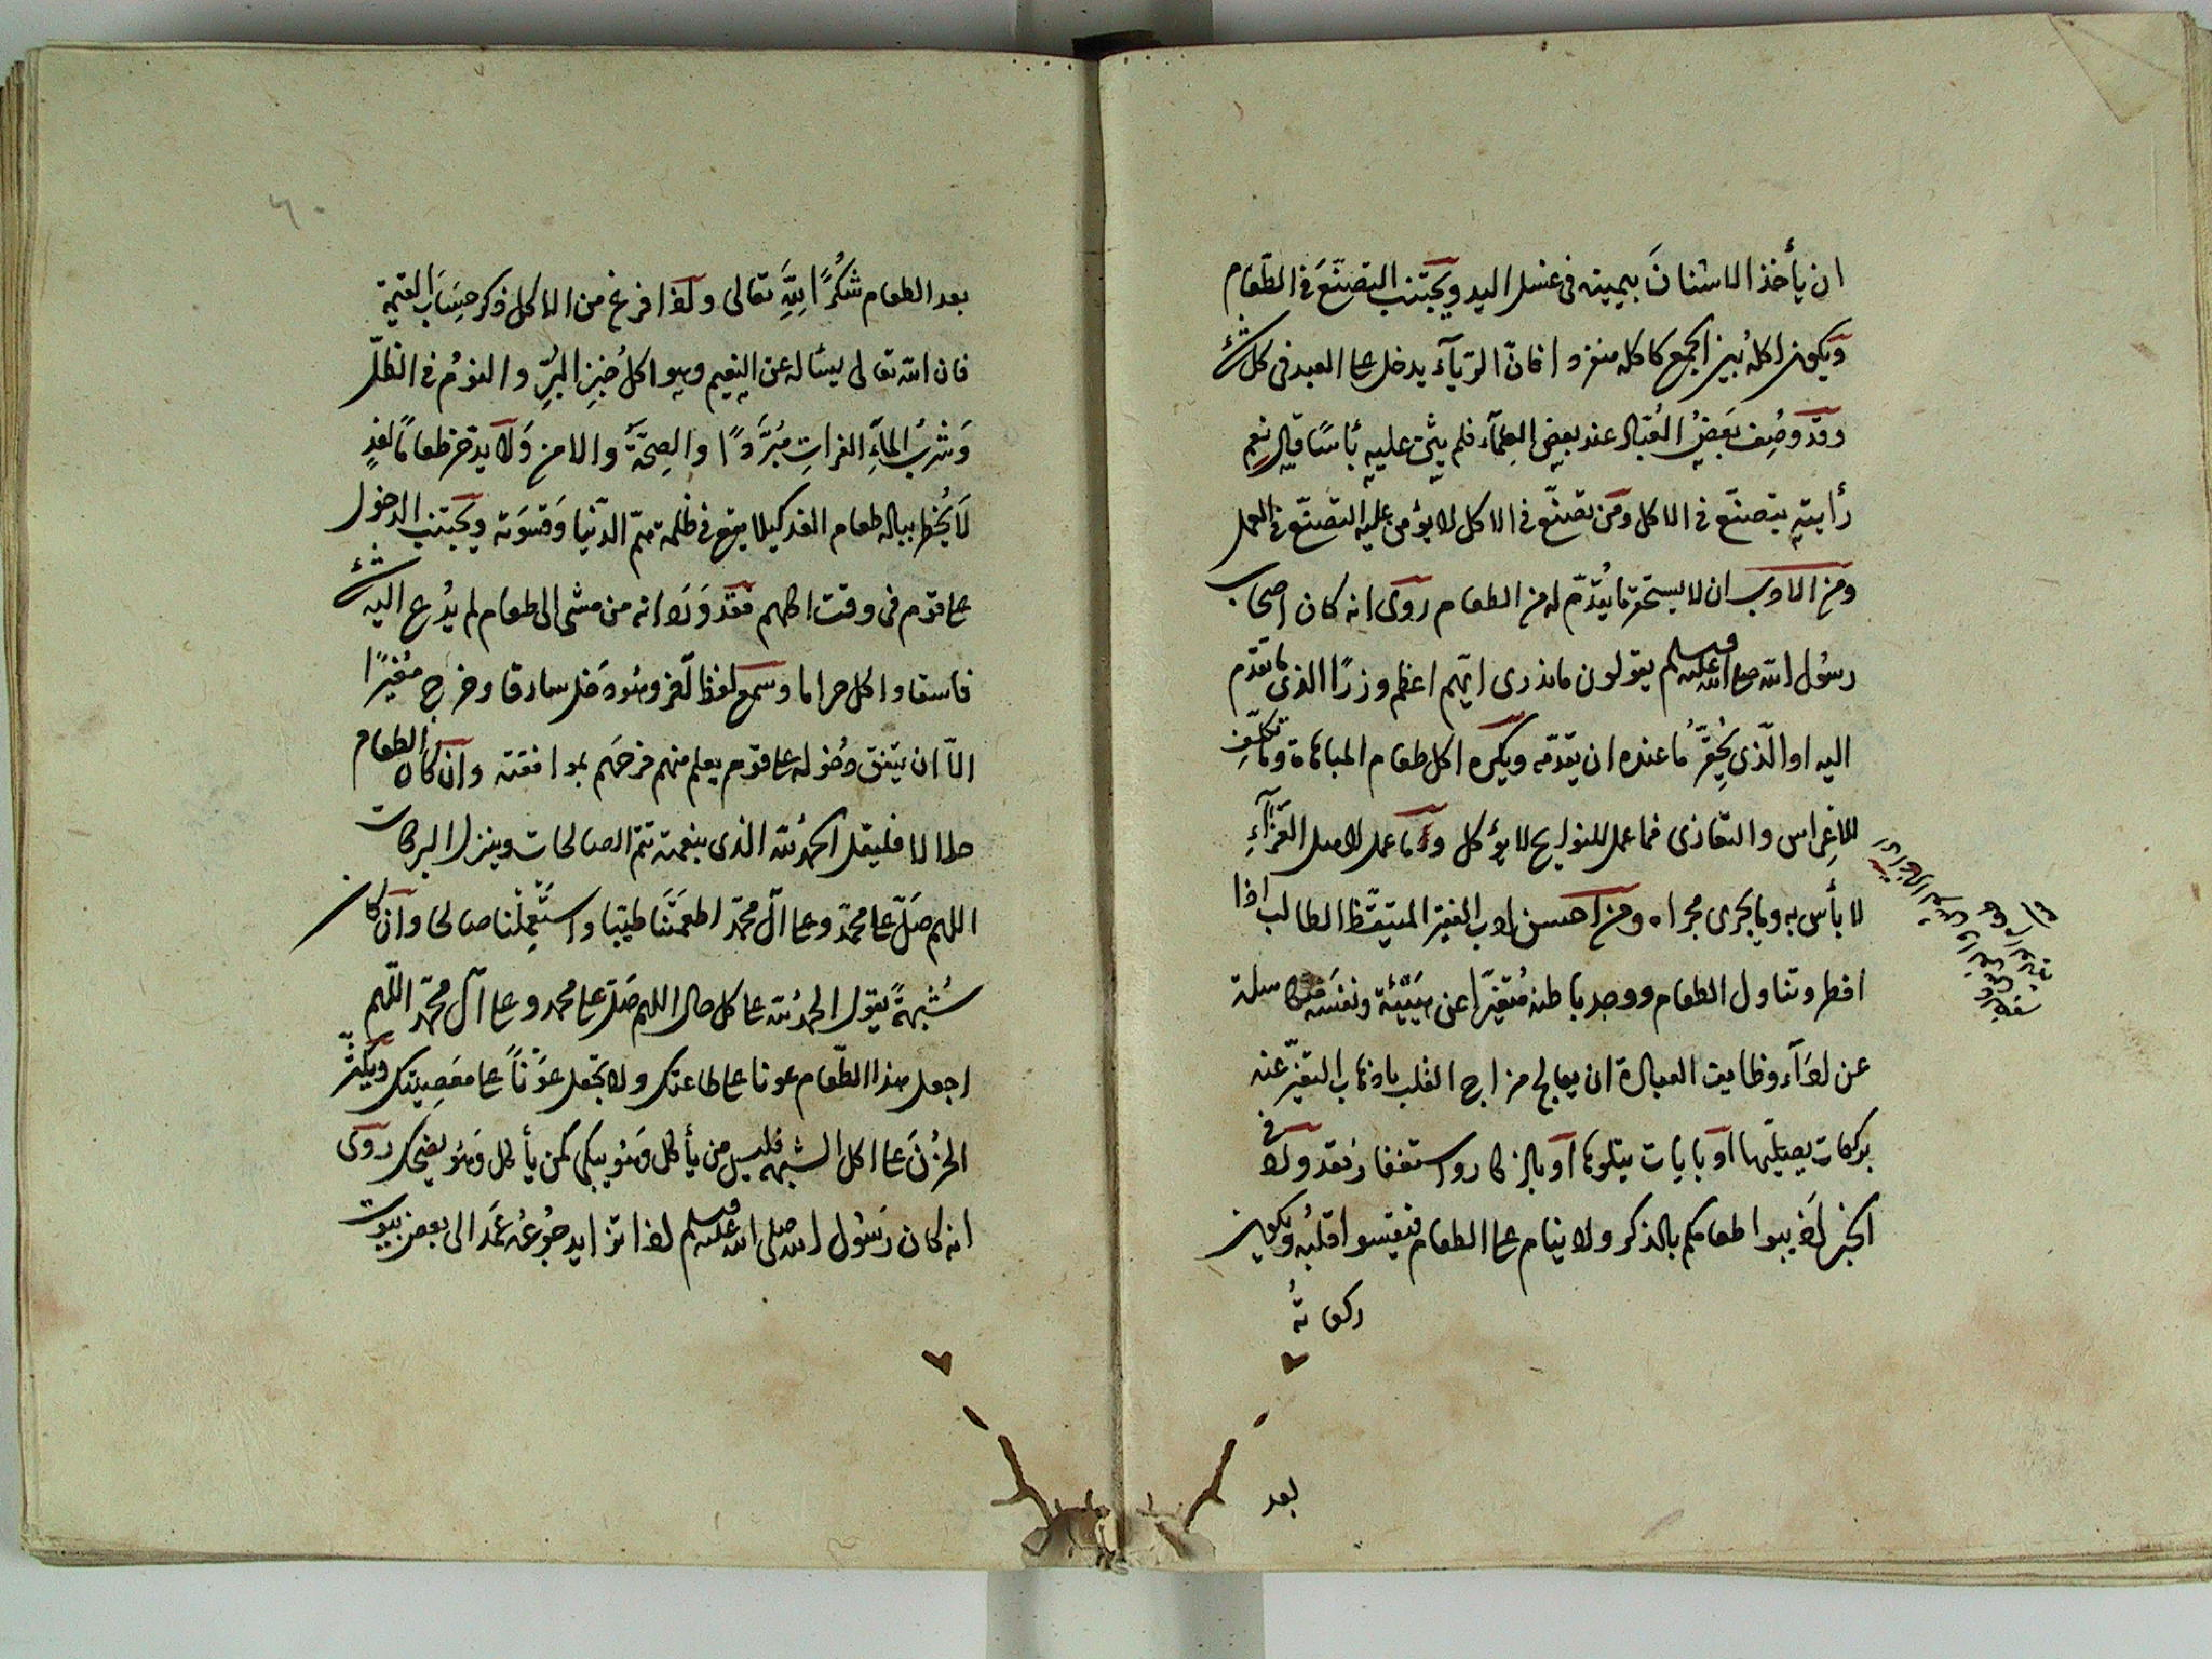 ان يأخذ الاشنانَ بيمينه فى غسل اليد ويجتنب التصنّعَ فى الطّعام
ويكون اكلهُ بين الجمع كاكله منفردا فانّ الرّيآء يدخل على العبد فى كل شئ
وقد وُصِف بعضُ العُبّاد عند بعض العلمآء فلم يثن عليه فقيل له تعلم به بأسًا قال نعم
رأيته يتصنّع فى الاكل ومَن تصنّع فى الاكل لا يؤمن عليه التصنّع فى العمل
ومن الادب ان لا يستحقر ما يُقدَّم له من الطعام روى انه كان اصحاب
رسُول الله صلى الله عليه وسلم يقولون ما ندرى ايّهم اعظم وزرًا الذى يحتقر ما تقدّم
اليه او الّذى يُحقِّرُ ما عنده ان يقدّمه ويكره اكل طعام المباهاة وما تكلّف
للاعِراس والتعازى فما عمل للنوايح لا يؤكل وما عمل لاهل العزآءِ
لا بأس به وما يجرى مجراه ومن احسن ادب الفقير المتيقّظ الطالب اذا
افطر وتناول الطعام ووجد باطنه مُتغيّرا عن هيئته ونفسَه متكاسلة
عن ادآء وظايف العبادة ان يعالج مزاج القلب باذهاب التغيّر عنه
بركعات يصلّيها او بايات يتلوها او باذكار واستغفار فقد ورد فى
الخبر اذيبوا طعامكم بالذكر ولا ينام على الطعام فيقسوا قلبُه ويكون
ركعاتهُ
بعد
بعد الطعام شُكرًا لِلّٰهِ تعالى واذا فرغ من الاكل ذكر حِسَاب القيمة
فان الله تعالى يسأله عن النعيم وهو اكلُ خبزِ البُرِّ والنومُ فى الظلّ
وَشربُ المآءِ الفراتِ مُبرَّدًا والصِحّةَ والامن وَلا يدّخر طعامًا لغدٍ
لا يُخطر بباله طعام الغد كيلا يقع فى ظلمة همّ الدّنيا وقسوته ويجتنب الدخول
على قوم فى وقت اكلهم فقد ورد انه من مشى الى طعام لم يُدع اليه مشى
فاسقا واكل حراما وسمع لفظ آخر وهُو دخل سارقا وخرج مُغيرًا
الّا ان يتفق دخُوله على قوم يعلم منهم فرحَهم بموافقته وان كان الطعام
حلالا فليقل الحمدُ لله الذى بنعمته تتم الصالحات وينزل البركات
اللهم صَلّ على محمّد وعلى آل محمّد اطعمتَنا طيّبا واستَعمِلْنا صالحا وان كان
شُبهةً يقول الحمدُ لله على كل حال اللهم صَلّ على محمد وعلى آل محمّد اللّهم
اجعل هذا الطّعام عونا على طاعتك ولا تجعله عوْنًا على معصِيتك ويكثّر
الحُزنَ على اكل الشبهة فليس من يأكل وَهُو يبكى كمن يأكل وَهُو يضحك روى
انه كان رَسُول الله صلى الله عليه وسلم اذا تزايد جُوعُه عمَد الى بعض بيوت